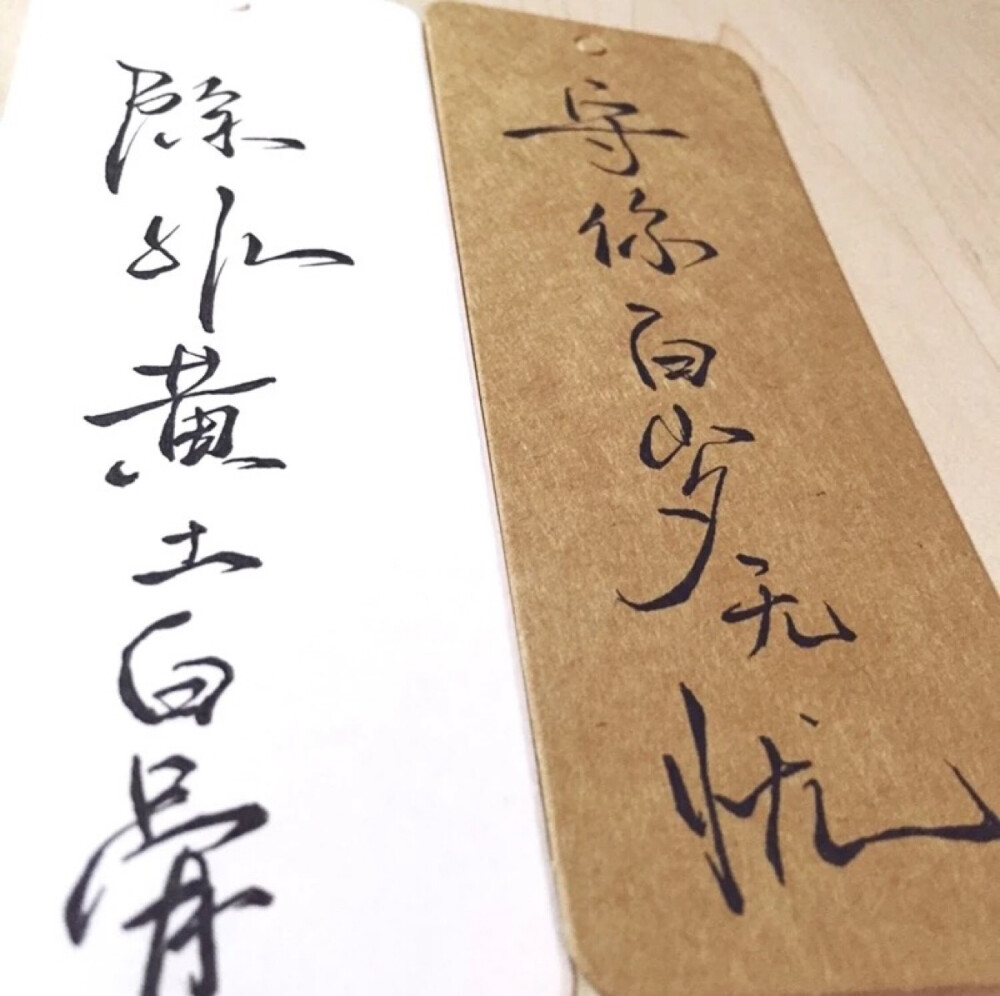 除非黄土白骨
守你百岁无忧